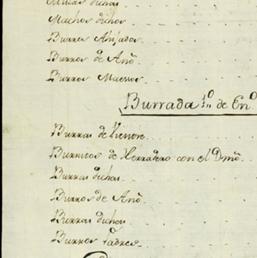 Mulas dichas
Machos dichos
Burros Añejados
Burros de Año
Burros Maesos
Burrada 1º de Enº
Burras de Vientre
Burricos de Herradero con el Dmo
Burras dichas
Burros de Año
Burras dichas
Burros Padres